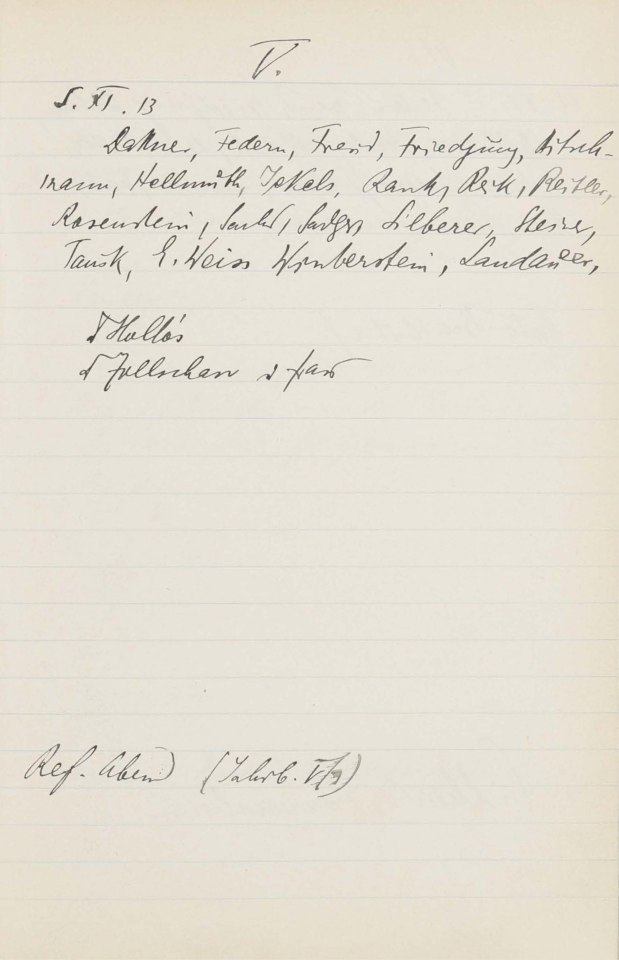 V.
5. XI. 13
Dattner, Federn, Freud, Friedjung, Hitsch-
mann, Hellmuth, Jekels, Rank, Reik, Reitler,
Rosenstein, Sachs, Sadger, Silberer, Steiner,
Tausk, E. Weiss Winterstein, Landauer,
Dr Hollós
Dr Zollschan u Frau
Ref. Abend (Jahrb. V/